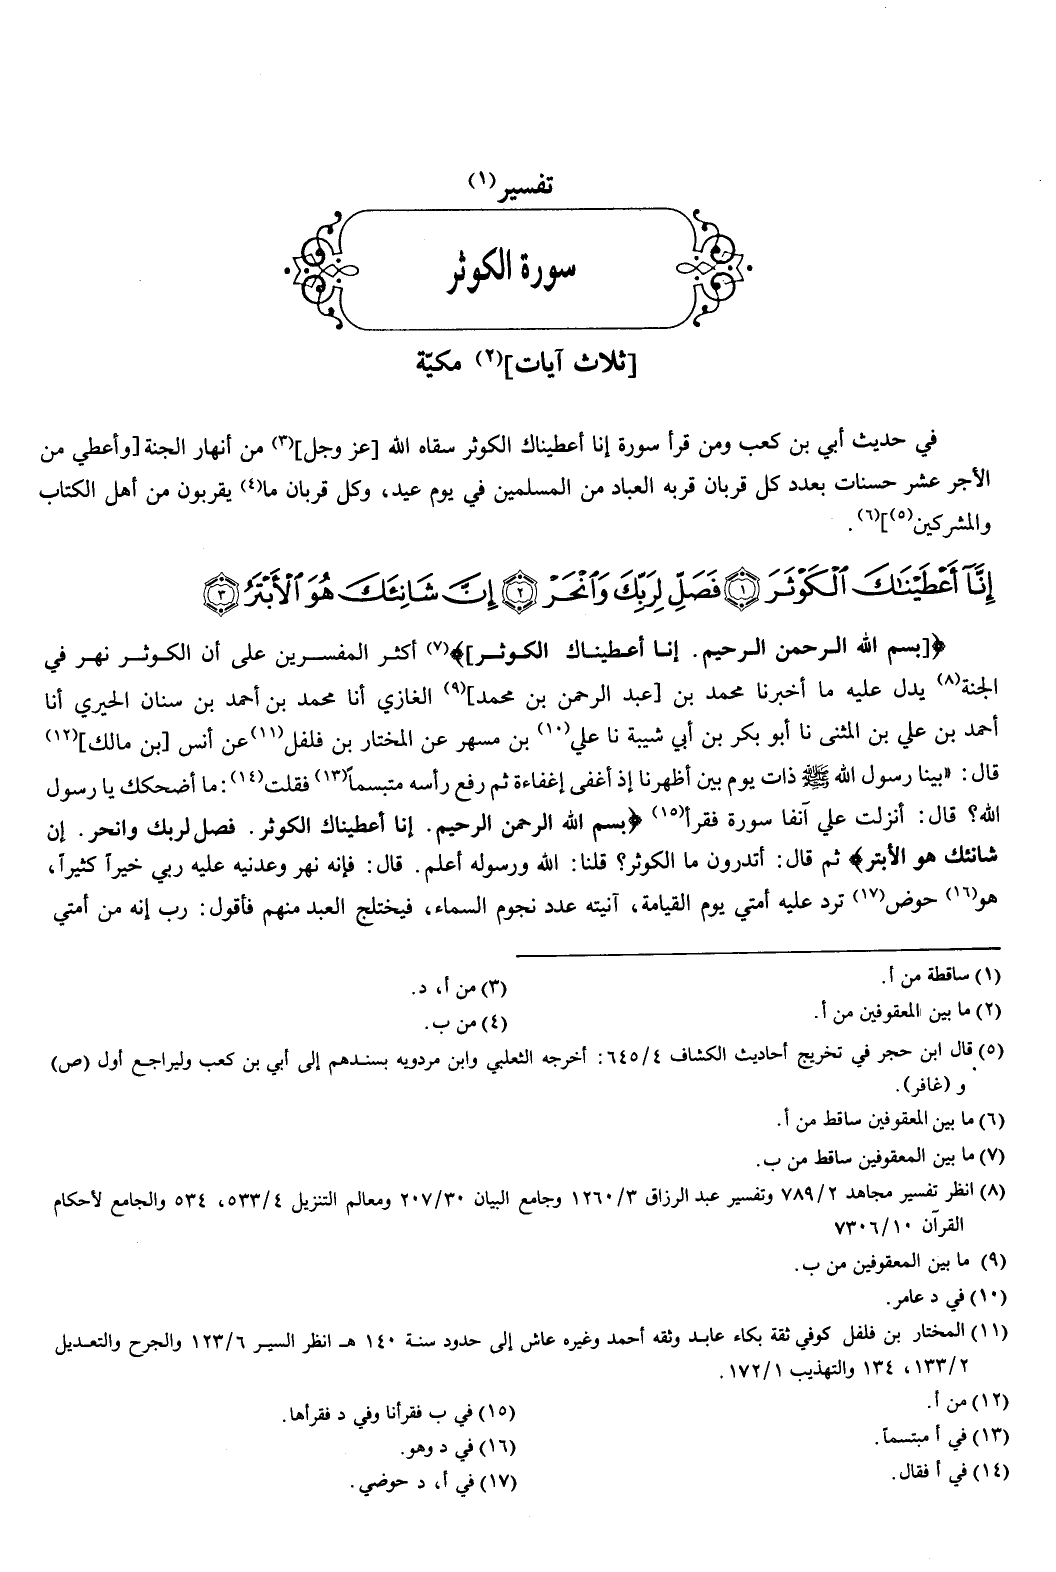 تفسير(١)
سورة الكوثر
[ثلاث آيات](٢) مكيّة
في حديث أبي بن كعب ومن قرأ سورة إنا أعطيناك الكوثر سقاه الله [عز وجل](٣) من أنهار الجنة [وأعطي من
الأجر عشر حسنات بعدد كل قربان قربه العباد من المسلمين في يوم عيد، وكل قربان ما(٤) يقربون من أهل الكتاب
والمشركين(٥)](٦).
إِنَّآ أَعْطَيْنَٰكَ ٱلْكَوْثَرَ ١ فَصَلِّ لِرَبِّكَ وَٱنْحَرْ ٢ إِنَّ شَانِئَكَ هُوَ ٱلْأَبْتَرُ ٣
﴿[بسم الله الرحمن الرحيم. إنا أعطيناك الكوثر]﴾(٧) أكثر المفسرين على أن الكوثر نهر في
الجنة(٨) يدل عليه ما أخبرنا محمد بن [عبد الرحمن بن محمد](٩) الغازي أنا محمد بن أحمد بن سنان الحيري أنا
أحمد بن علي بن المثنى نا أبو بكر بن أبي شيبة نا علي(١٠) بن مسهر عن المختار بن فلفل(١١) عن أنس [بن مالك](١٢)
قال: «بينا رسول الله ﷺ ذات يوم بين أظهرنا إذ أغفى إغفاءة ثم رفع رأسه متبسماً(١٣) فقلت(١٤): ما أضحكك يا رسول
الله؟ قال: أنزلت علي آنفا سورة فقرأ(١٥) ﴿بسم الله الرحمن الرحيم. إنا أعطيناك الكوثر. فصل لربك وانحر. إن
شانئك هو الأبتر﴾ ثم قال: أتدرون ما الكوثر؟ قلنا: الله ورسوله أعلم. قال: فإنه نهر وعدنيه عليه ربي خيراً كثيراً،
هو(١٦) حوض(١٧) ترد عليه أمتي يوم القيامة، آنيته عدد نجوم السماء، فيختلج العبد منهم فأقول: رب إنه من أمتي
(١) ساقطة من أ.
(٢) ما بين المعقوفين من أ.
(٣) من أ، د.
(٤) من ب.
(٥) قال ابن حجر في تخريج أحاديث الكشاف ٦٤٥/٤: أخرجه الثعلبي وابن مردويه بسندهم إلى أبي بن كعب وليراجع أول (ص)
و (غافر).
(٦) ما بين المعقوفين ساقط من أ.
(٧) ما بين المعقوفين ساقط من ب.
(٨) انظر تفسير مجاهد ٧٨٩/٢ وتفسير عبد الرزاق ١٢٦٠/٣ وجامع البيان ٢٠٧/٣٠ ومعالم التنزيل ٥٣٣/٤، ٥٣٤ والجامع لأحكام
القرآن ٧٣٠٦/١٠
(٩) ما بين المعقوفين من ب.
(١٠) في د عامر.
(١١) المختار بن فلفل كوفي ثقة بكاء عابد وثقه أحمد وغيره عاش إلى حدود سنة ١٤٠ هـ انظر السير ١٢٣/٦ والجرح والتعديل
١٣٣/٢، ١٣٤ والتهذيب ١٧٢/١.
(١٢) من أ.
(١٣) في أ مبتسماً.
(١٤) في أ فقال.
(١٥) في ب فقرأنا وفي د فقرأها.
(١٦) في د وهو.
(١٧) في أ، د حوضي.